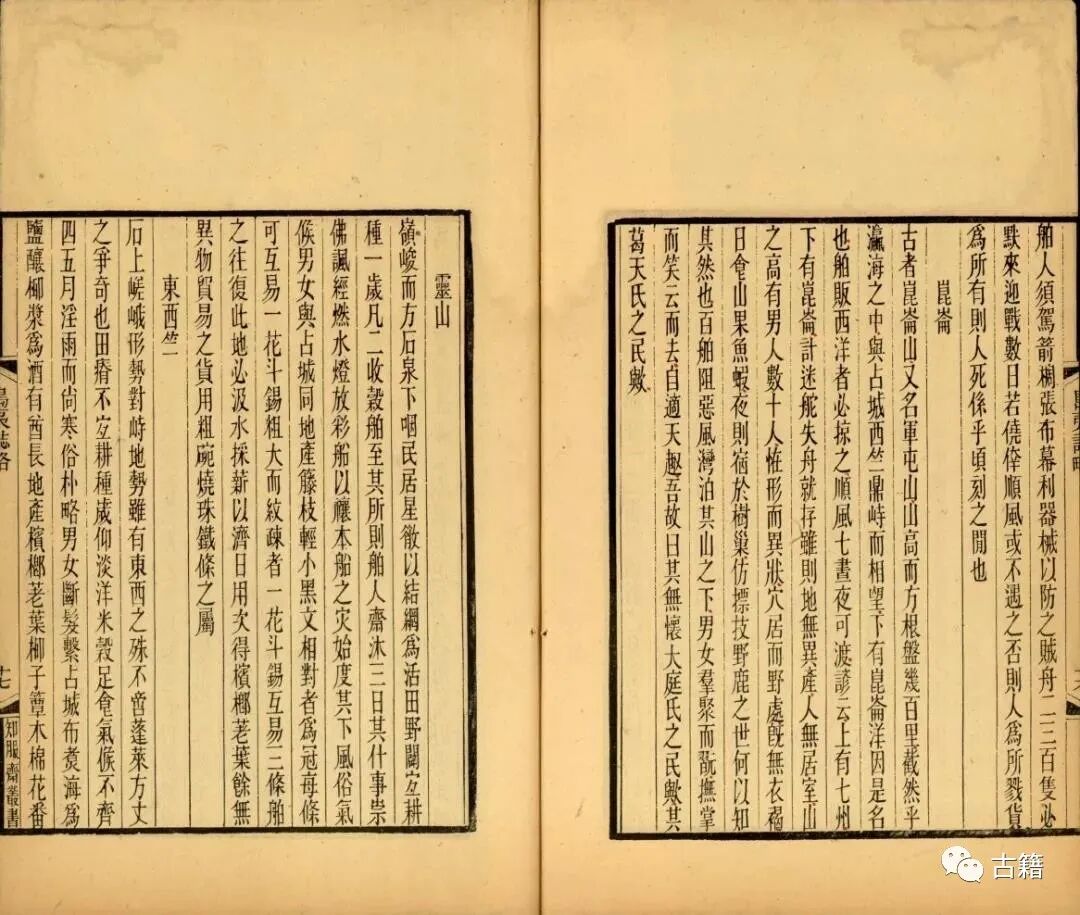 舶人須駕箭棚張布幕利器械以防之賊舟二三百隻必
默來迎戰數日若僥倖順風或不遇之否則人爲所戮貨
爲所有則人死係乎頃刻之間也
崑崙
古者崑崙山又名軍屯山山高而方根盤幾百里截然乎
瀛海之中與占城西竺鼎峙而相望下有崑崙洋因是名
也舶販西洋者必掠之順風七晝夜可渡諺云上有七州
下有崑崙計迷舵失舟就存雖則地無異產人無居室山
之高有男人數十人恠形而異狀穴居而野處旣無衣褐
日食山果魚蝦夜則宿於樹巢仿摽技野鹿之世何以知
其然也百舶阻惡風灣泊其山之下男女羣聚而翫撫掌
而笑云而去自適天趣吾故曰其無懷大庭氏之民歟其
葛天氏之民歟
靈山
嶺峻而方石泉下咽民居星散以結網爲活田野闢宜耕
種一歲凡二收穀舶至其所則舶人齋沐三日其什事崇
佛諷經燃水燈放彩船以禳本船之灾始度其下風俗氣
候男女與占城同地產籐枝輕小黑文相對者爲冠每條
可互易一花斗錫粗大而紋疎者一花斗錫互易三條舶
之往復此地必汲水採薪以濟日用次得檳榔荖葉餘無
異物貿易之貨用粗碗燒珠鐵條之屬
東西竺
石上嵯峨形勢對峙地勢雖有東西之殊不啻蓬萊方丈
之爭奇也田瘠不宜耕種歲仰淡洋米穀足食氣候不齊
四五月淫雨而尚寒俗朴略男女斷髮繫占城布煑海爲
鹽釀椰漿爲酒有酋長地產檳榔荖葉椰子簟木棉花番
島夷誌略
十七
知服齋叢書
古籍